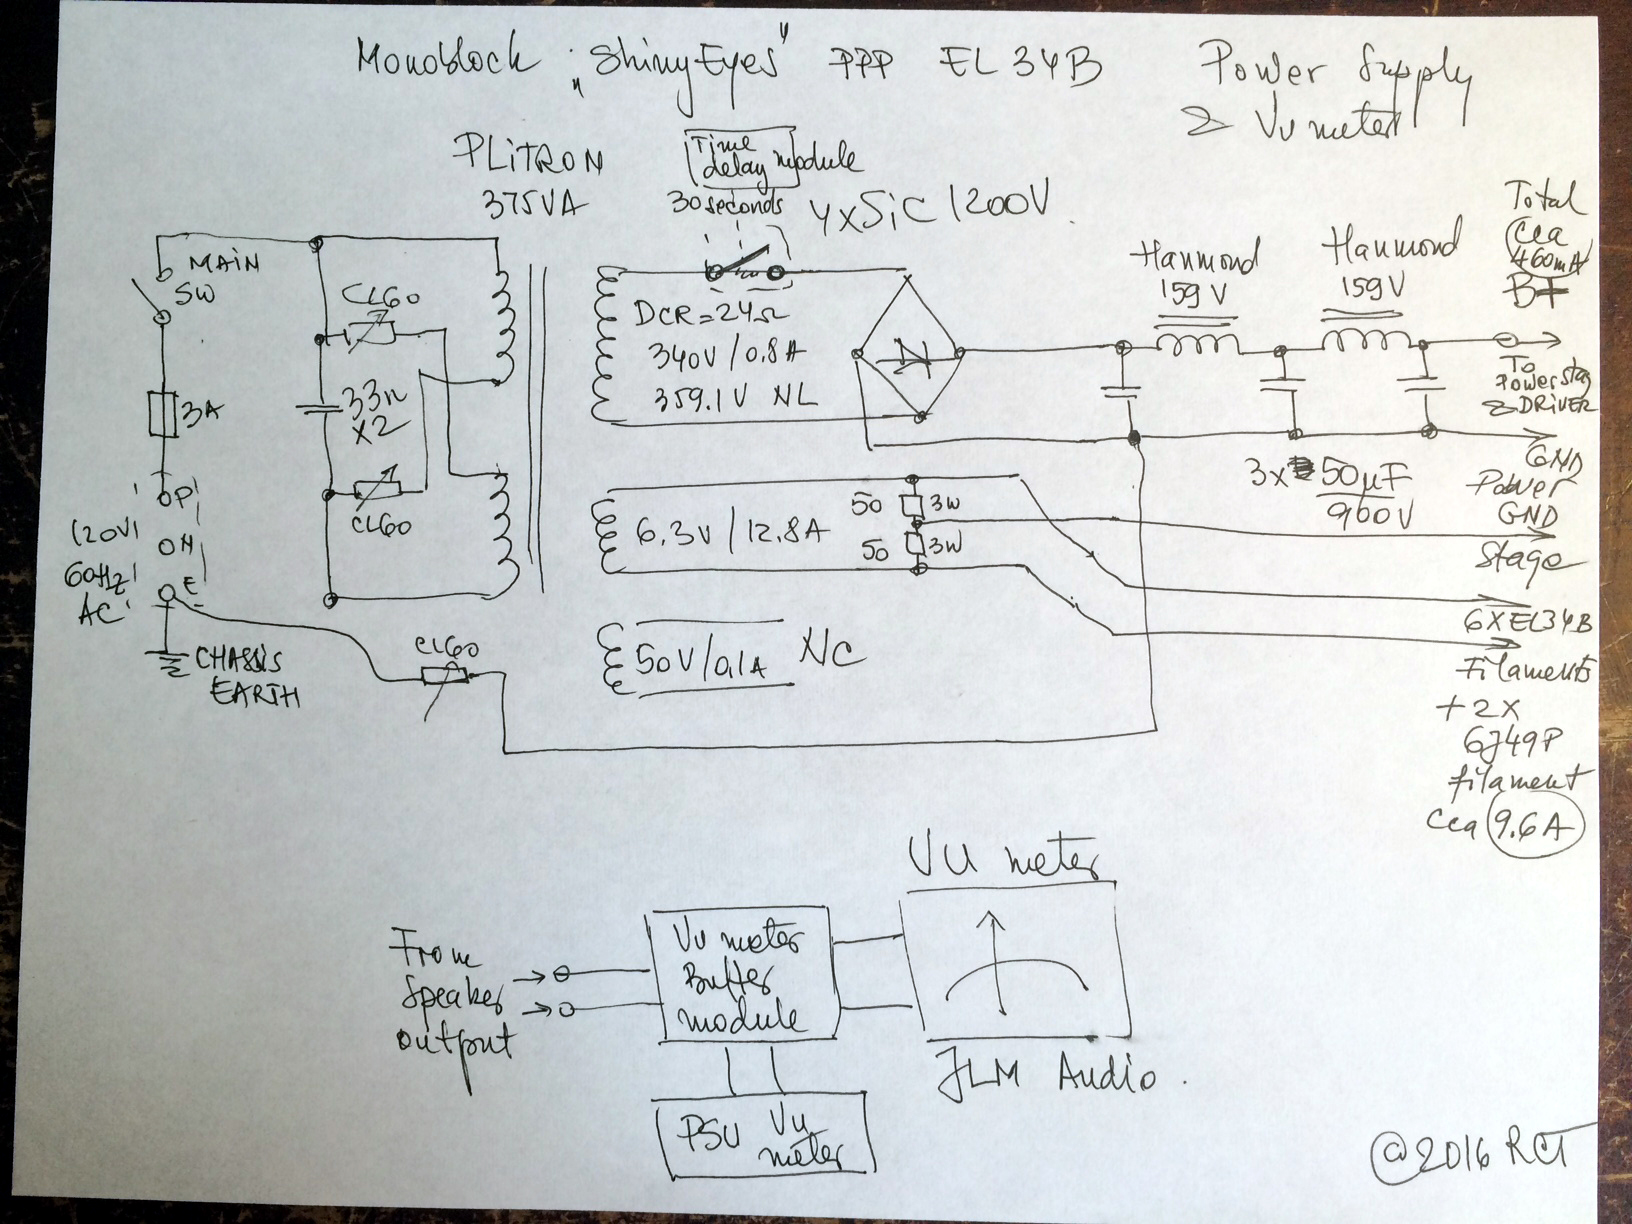 Monoblock „ShinyEyes" PPP EL34B
Power Supply
& Vu meter
PLiTRON
375VA
Time
delay module
30 seconds
4xSiC 1200V.
Total
cca
460mA
B+
Hammond
159V
Hammond
159V
MAiN
SW
CL60
DCR=24Ω
340V/0.8A
359.1V NL
To
Powerstag
& DRiVER
3A
33n
X2
GND
3x 50µF
960V
Power
GND
Stage
P
120V
N
60Hz
E
AC
CL60
50 3W
50 3W
6.3V/12.8A
6XEL34B
Filaments
+2X
6J49P
filament
cca 9.6A
CHASSIS
EARTH
CL60
50V/0.1A NC
VU meter
From
Speaker
output
Vu meter
Buffer
module
JLM Audio.
PSU Vu
meter
©2016 RCT